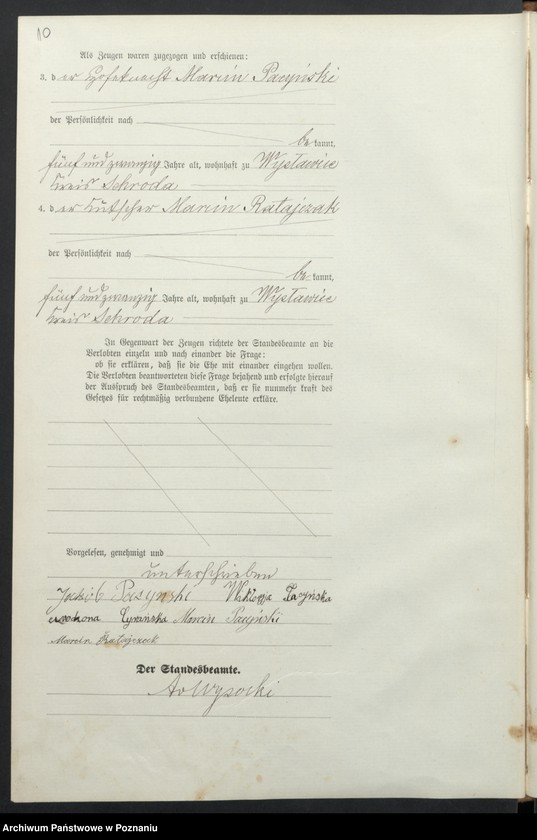 10
Als Zeugen waren zugezogen und erschienen:
3. der Hofeknecht Marcin Pacyński
der Persönlichkeit nach
be kannt,
fünfundzwanzig Jahre alt, wohnhaft zu Wysławice
Kreis Schroda
4. der Kutscher Marcin Ratajczak
der Persönlichkeit nach
be kannt,
fünfundzwanzig Jahre alt, wohnhaft zu Wysławice
Kreis Schroda
In Gegenwart der Zeugen richtete der Standesbeamte an die
Verlobten einzeln und nach einander die Frage:
ob sie erklären, daß sie die Ehe mit einander eingehen wollen.
Die Verlobten beantworteten diese Frage bejahend und erfolgte hierauf
der Ausspruch des Standesbeamten, daß er sie nunmehr kraft des
Gesetzes für rechtmäßig verbundene Eheleute erkläre.
Vorgelesen, genehmigt und
unterschrieben
Jakób Pacyński Wiktorja Pacyńska
Marcin Pacyński
Marcin Ratajczak
Der Standesbeamte.
Wysocki
Archiwum Państwowe w Poznaniu